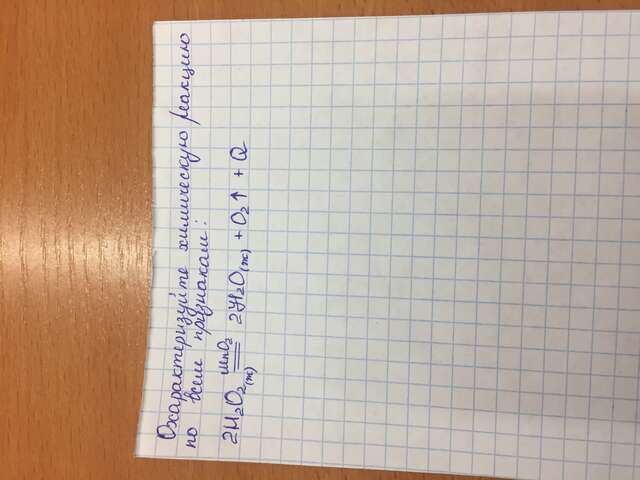 Охарактеризуйте химическую реакцию
по всем признакам:
2H₂O₂(ж) MnO₂ == 2H₂O(ж) + O₂↑ + Q